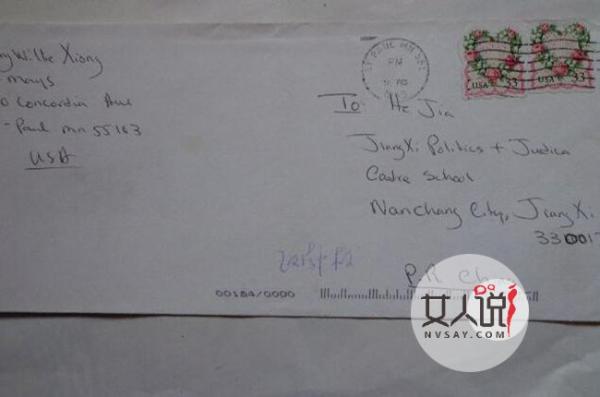 Xiong
mays
Concordia Ave
Paul mn 55103
USA
ST PAUL MN
PM
USA 33
USA 33
To He Jia
JiangXi Politics + Justice
Cadre School
Nanchang City, JiangXi
P.R
00184/0000
女人说
NVSAY.COM